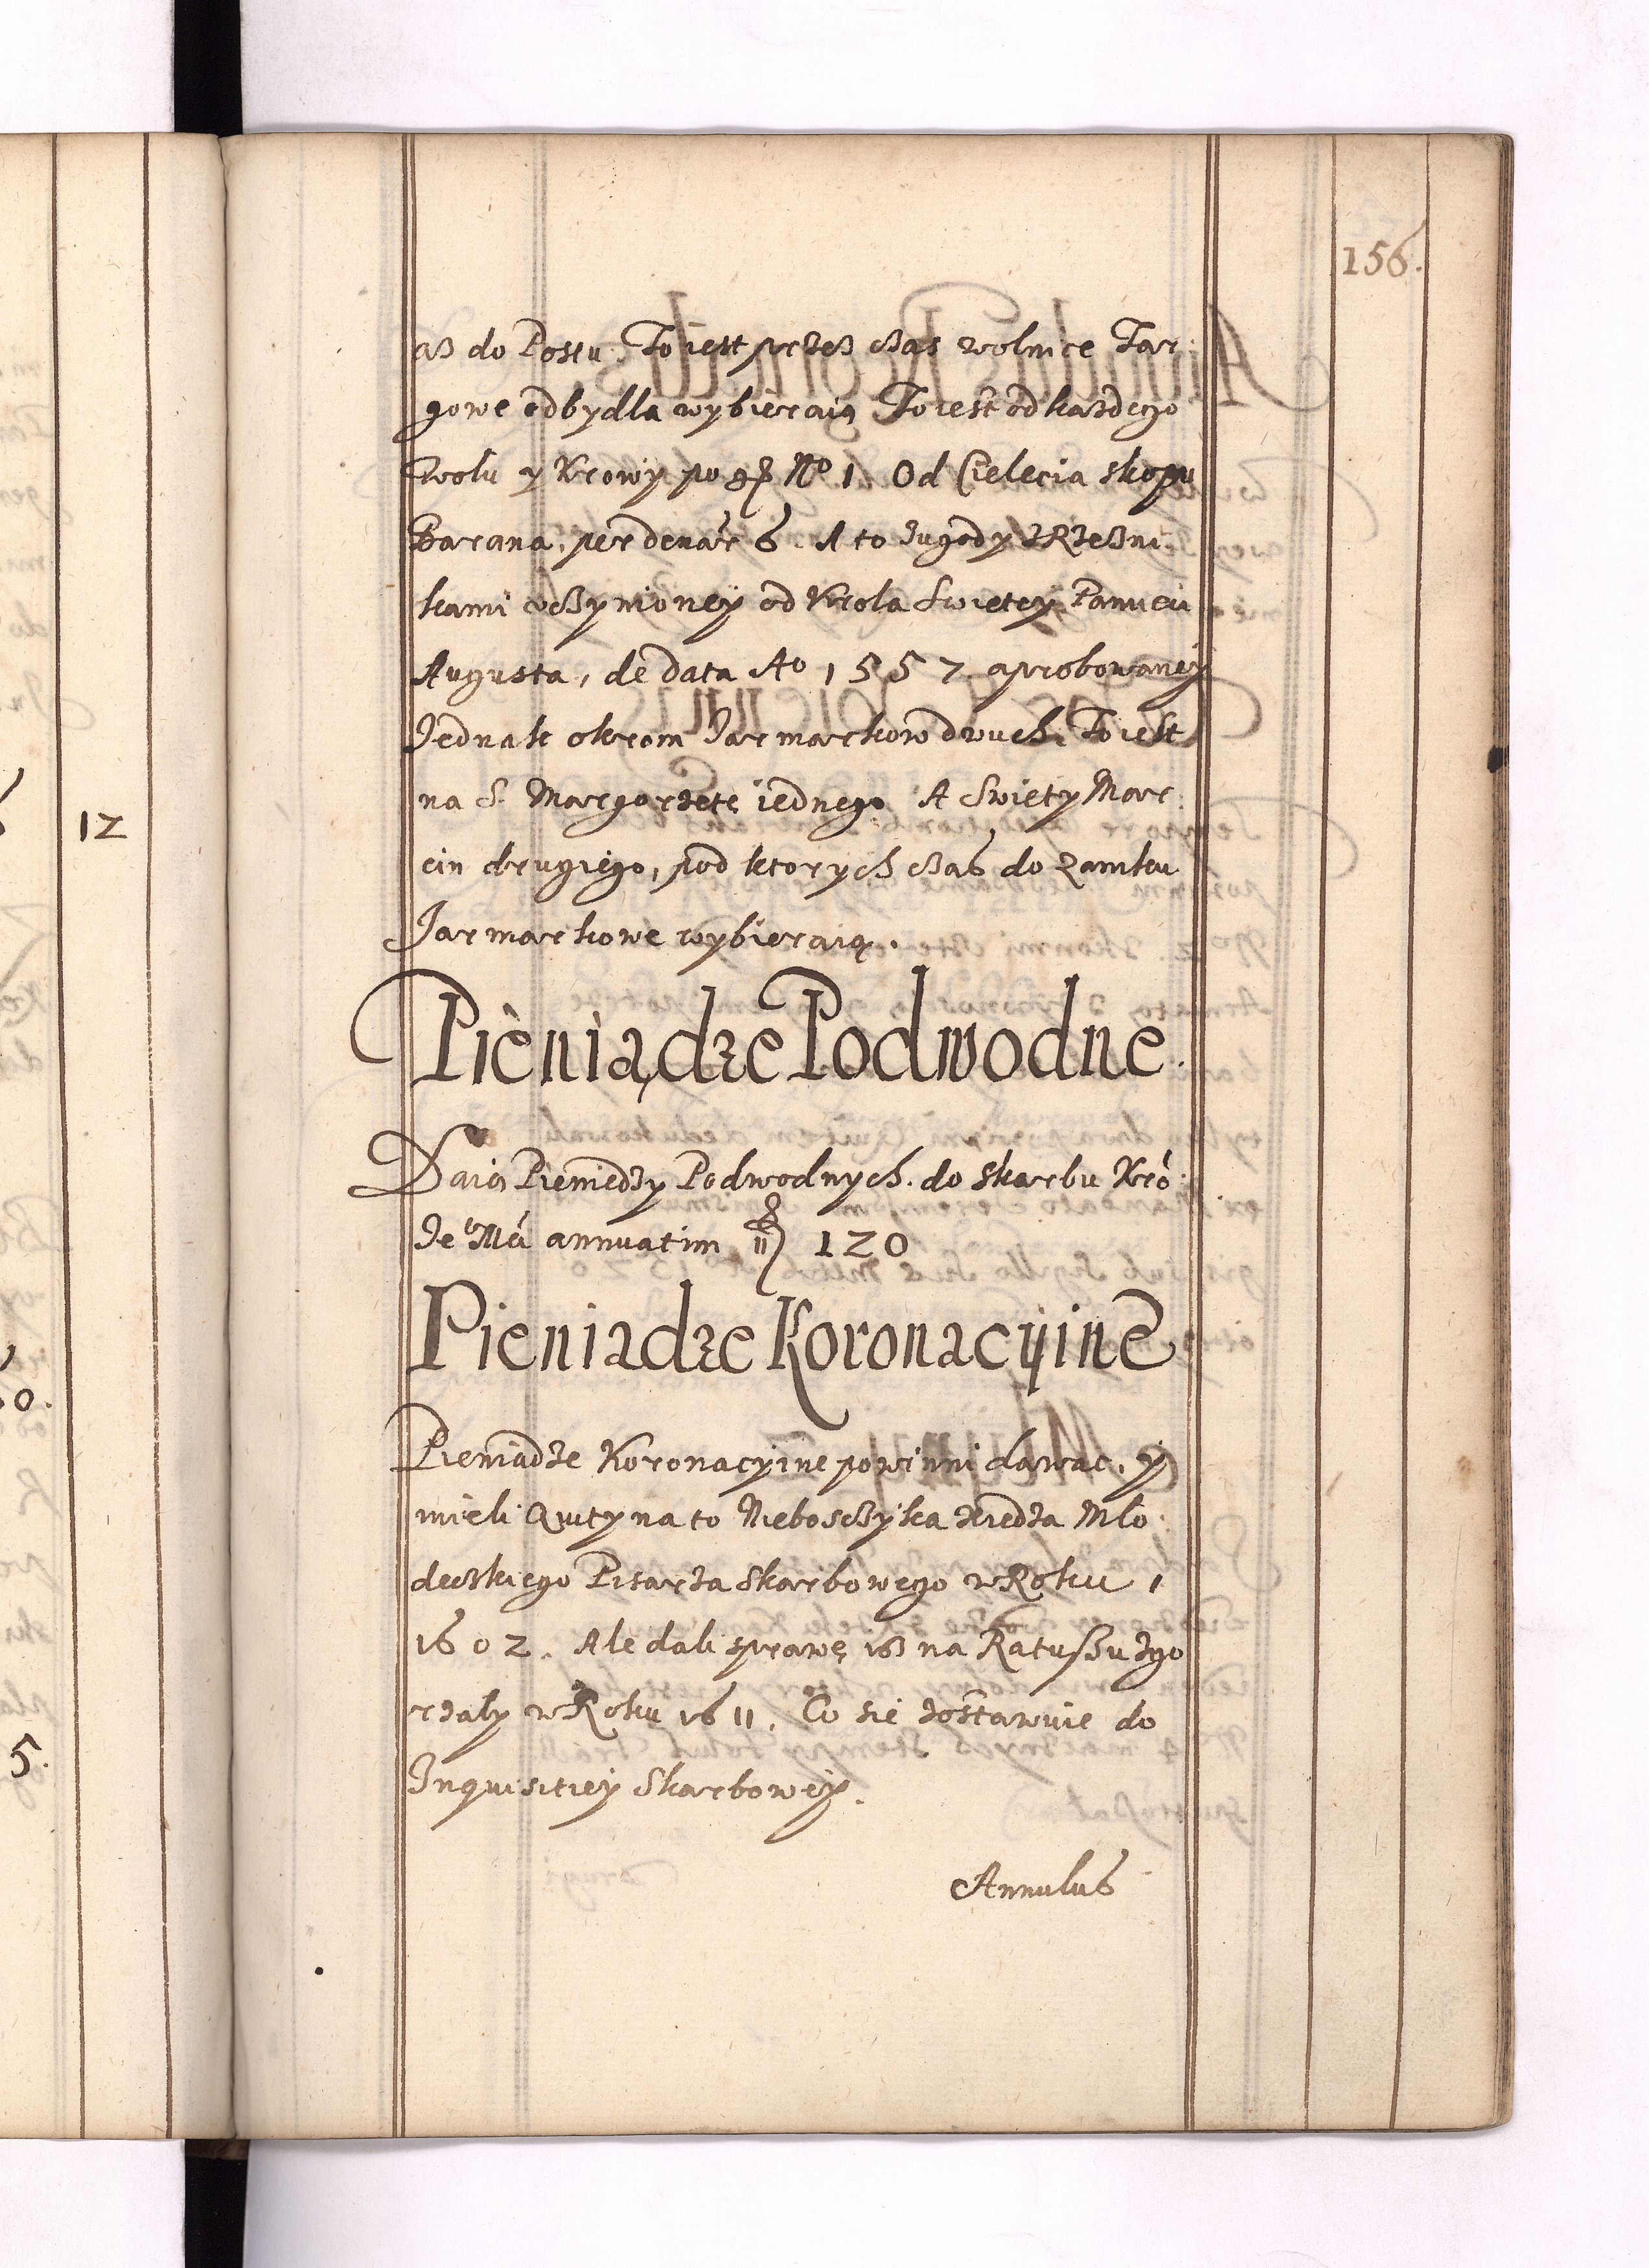 156.
aß do Postu. To iest przeß cżas wolnice Tar:
gowe odbydla wybieraią To iest od każdego
Wołu y Krowy po gr No 1. Od Cielecia skopu
Barana, per denar 6. A to zugody zRzeźni:
kami ucżynioney od Krola Swietey Pamieci
Augusta, de data Ao 1557. aprobowaney
Jednak okrom Jarmarkow dwuch. To iest
na S. Margorzete iednego A Swiety Mar:
cin drugiego, pod ktorych cżas do zamku
Jarmarkowe wybieraią.
Pieniądze Podwodne.
Daią Pieniedzy Podwodnych. do Skarbu Kró:
Je Mci annuatim 120
Pieniadze Koronacyine
Pieniadze Koronacyine powinni dawac, y
mieli Quity na to Nieboscżyka Xiedza Mło:
deckiego Pisarza Skarbowego w Roku 1
1602. Ale dali sprawę iß na Ratußu zgo
rzały w Roku 1611. Co sie zostawuie do
Inquisitiey Skarbowey.
Annulus
12
0.
5.